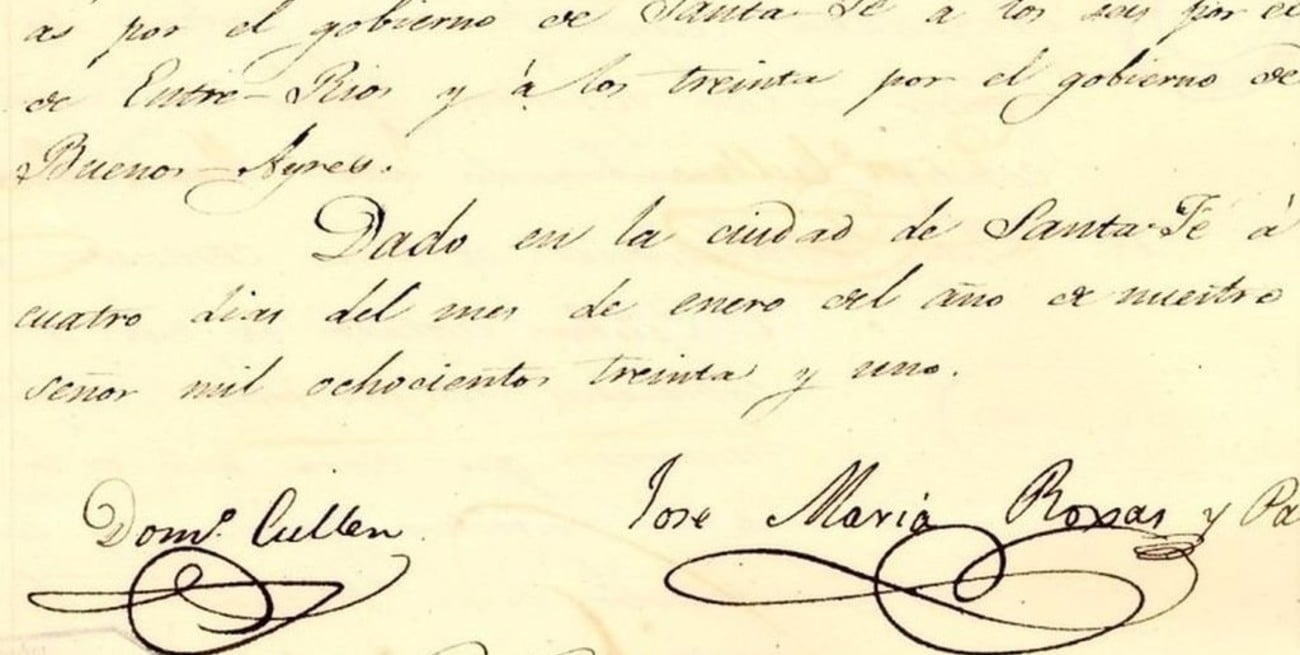 as por el gobierno de Santa-Fé a los seis por el
de Entre-Rios y á los treinta por el gobierno de
Buenos-Ayres.
Dado en la ciudad de Santa-Fé á
cuatro dias del mes de enero del año de nuestro
señor mil ochocientos treinta y uno.
Domº. Cullen
Jose Maria Roxas y Pa